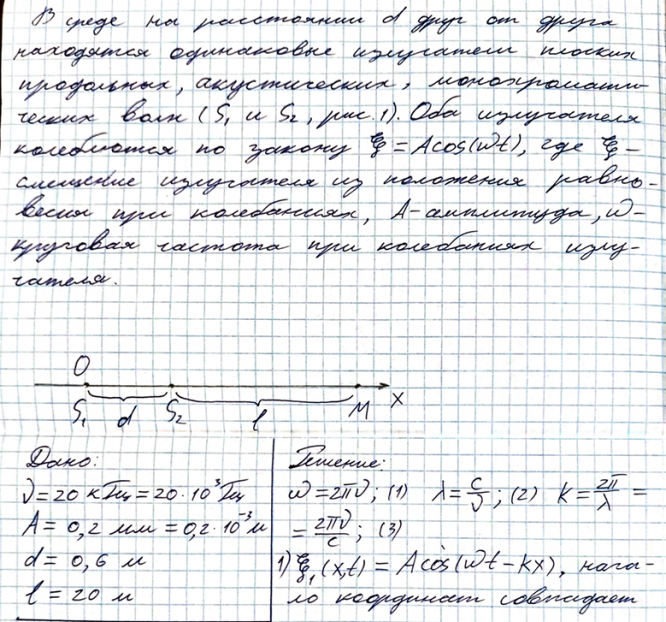 В среде на расстоянии d друг от друга
находятся одинаковые излучатели плоских
продольных, акустических, монохромати-
ческих волн (S₁ и S₂, рис.1). Оба излучателя
колеблются по закону ξ = Acos(ωt), где ξ-
смещение излучателя из положения равно-
весия при колебаниях, A-амплитуда, ω-
круговая частота при колебаниях излу-
чателя.
O
S₁ d S₂ l M X
Дано:
ν = 20 кГц = 20·10³ Гц
A = 0,2 мм = 0,2·10⁻³ м
d = 0,6 м
l = 20 м
Решение:
ω = 2πν; (1) λ = c/ν; (2) k = 2π/λ =
= 2πν/c; (3)
1) ξ₁(x,t) = Acos(ωt - kx), нача-
ло координат совпадает